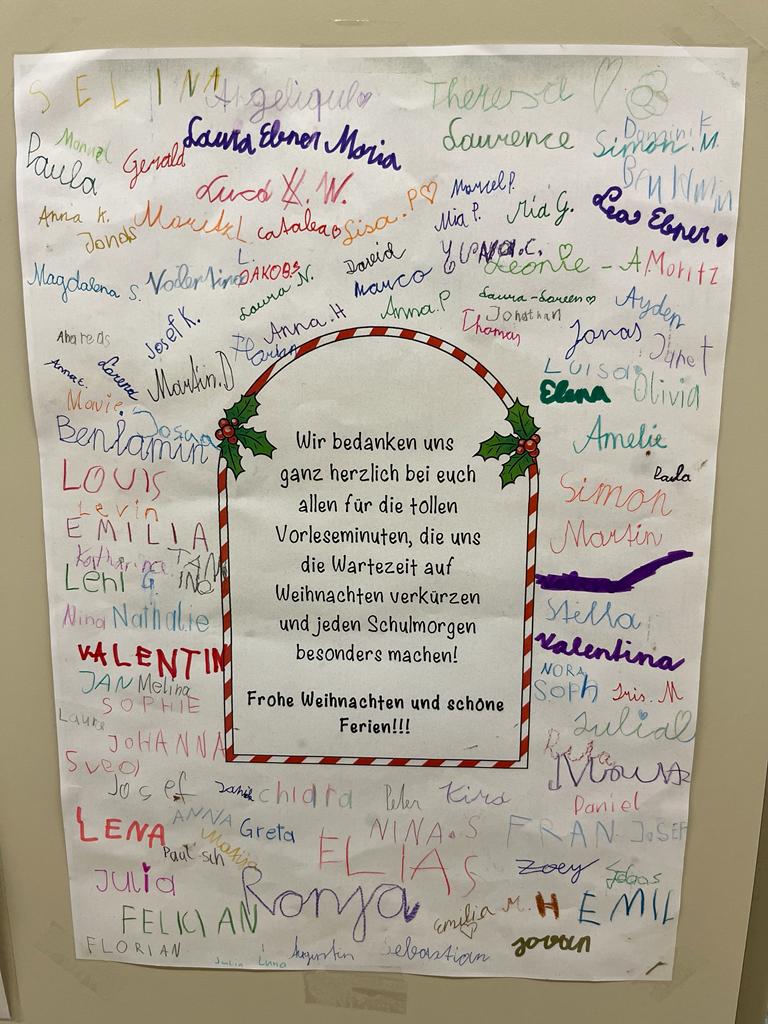 SELINA Angelique Theresa
Manuel Gerald Laura Ebner Maria Laurence Dominik
Simon.M.
Paula Luca X. W. Lea Ebner
Anna K. Moritz L. Catalea Lisa.P Marcel P.
Mia P. Mia G.
Jonas David Leonie - A. Moritz
Magdalena S. Valentino L. JAKOB Marco
Laura N. Anna.P Laura-Loreen Ayden
Josef K. Anna.H Thomas Jonathan Jonas
Florian Janet
Anna E. Lorena Martin.D Luisa
Elena Olivia
Josua
Benjamin Amelie
LOUIS Paula
Levin Simon
EMILIA Martin
Katharina
Leni G. TAM INO
Nina Nathalie Stella
VALENTIN Valentina
JAN Melina NORA
SOPHIE SOPH Iris. M
Laura Julia
JOHANNA
Svea
Wir bedanken uns
ganz herzlich bei euch
allen für die tollen
Vorleseminuten, die uns
die Wartezeit auf
Weihnachten verkürzen
und jeden Schulmorgen
besonders machen!
Frohe Weihnachten und schöne
Ferien!!!
Josef chiara Peter Kira Daniel
LENA ANNA Greta NINA.S FRANJOSEF
Paul-Sch ELIAS Zoey
Julia Ronja Emilia M. H EMIL
FELICIAN
FLORIAN Julia Luna Augustin Sebastian